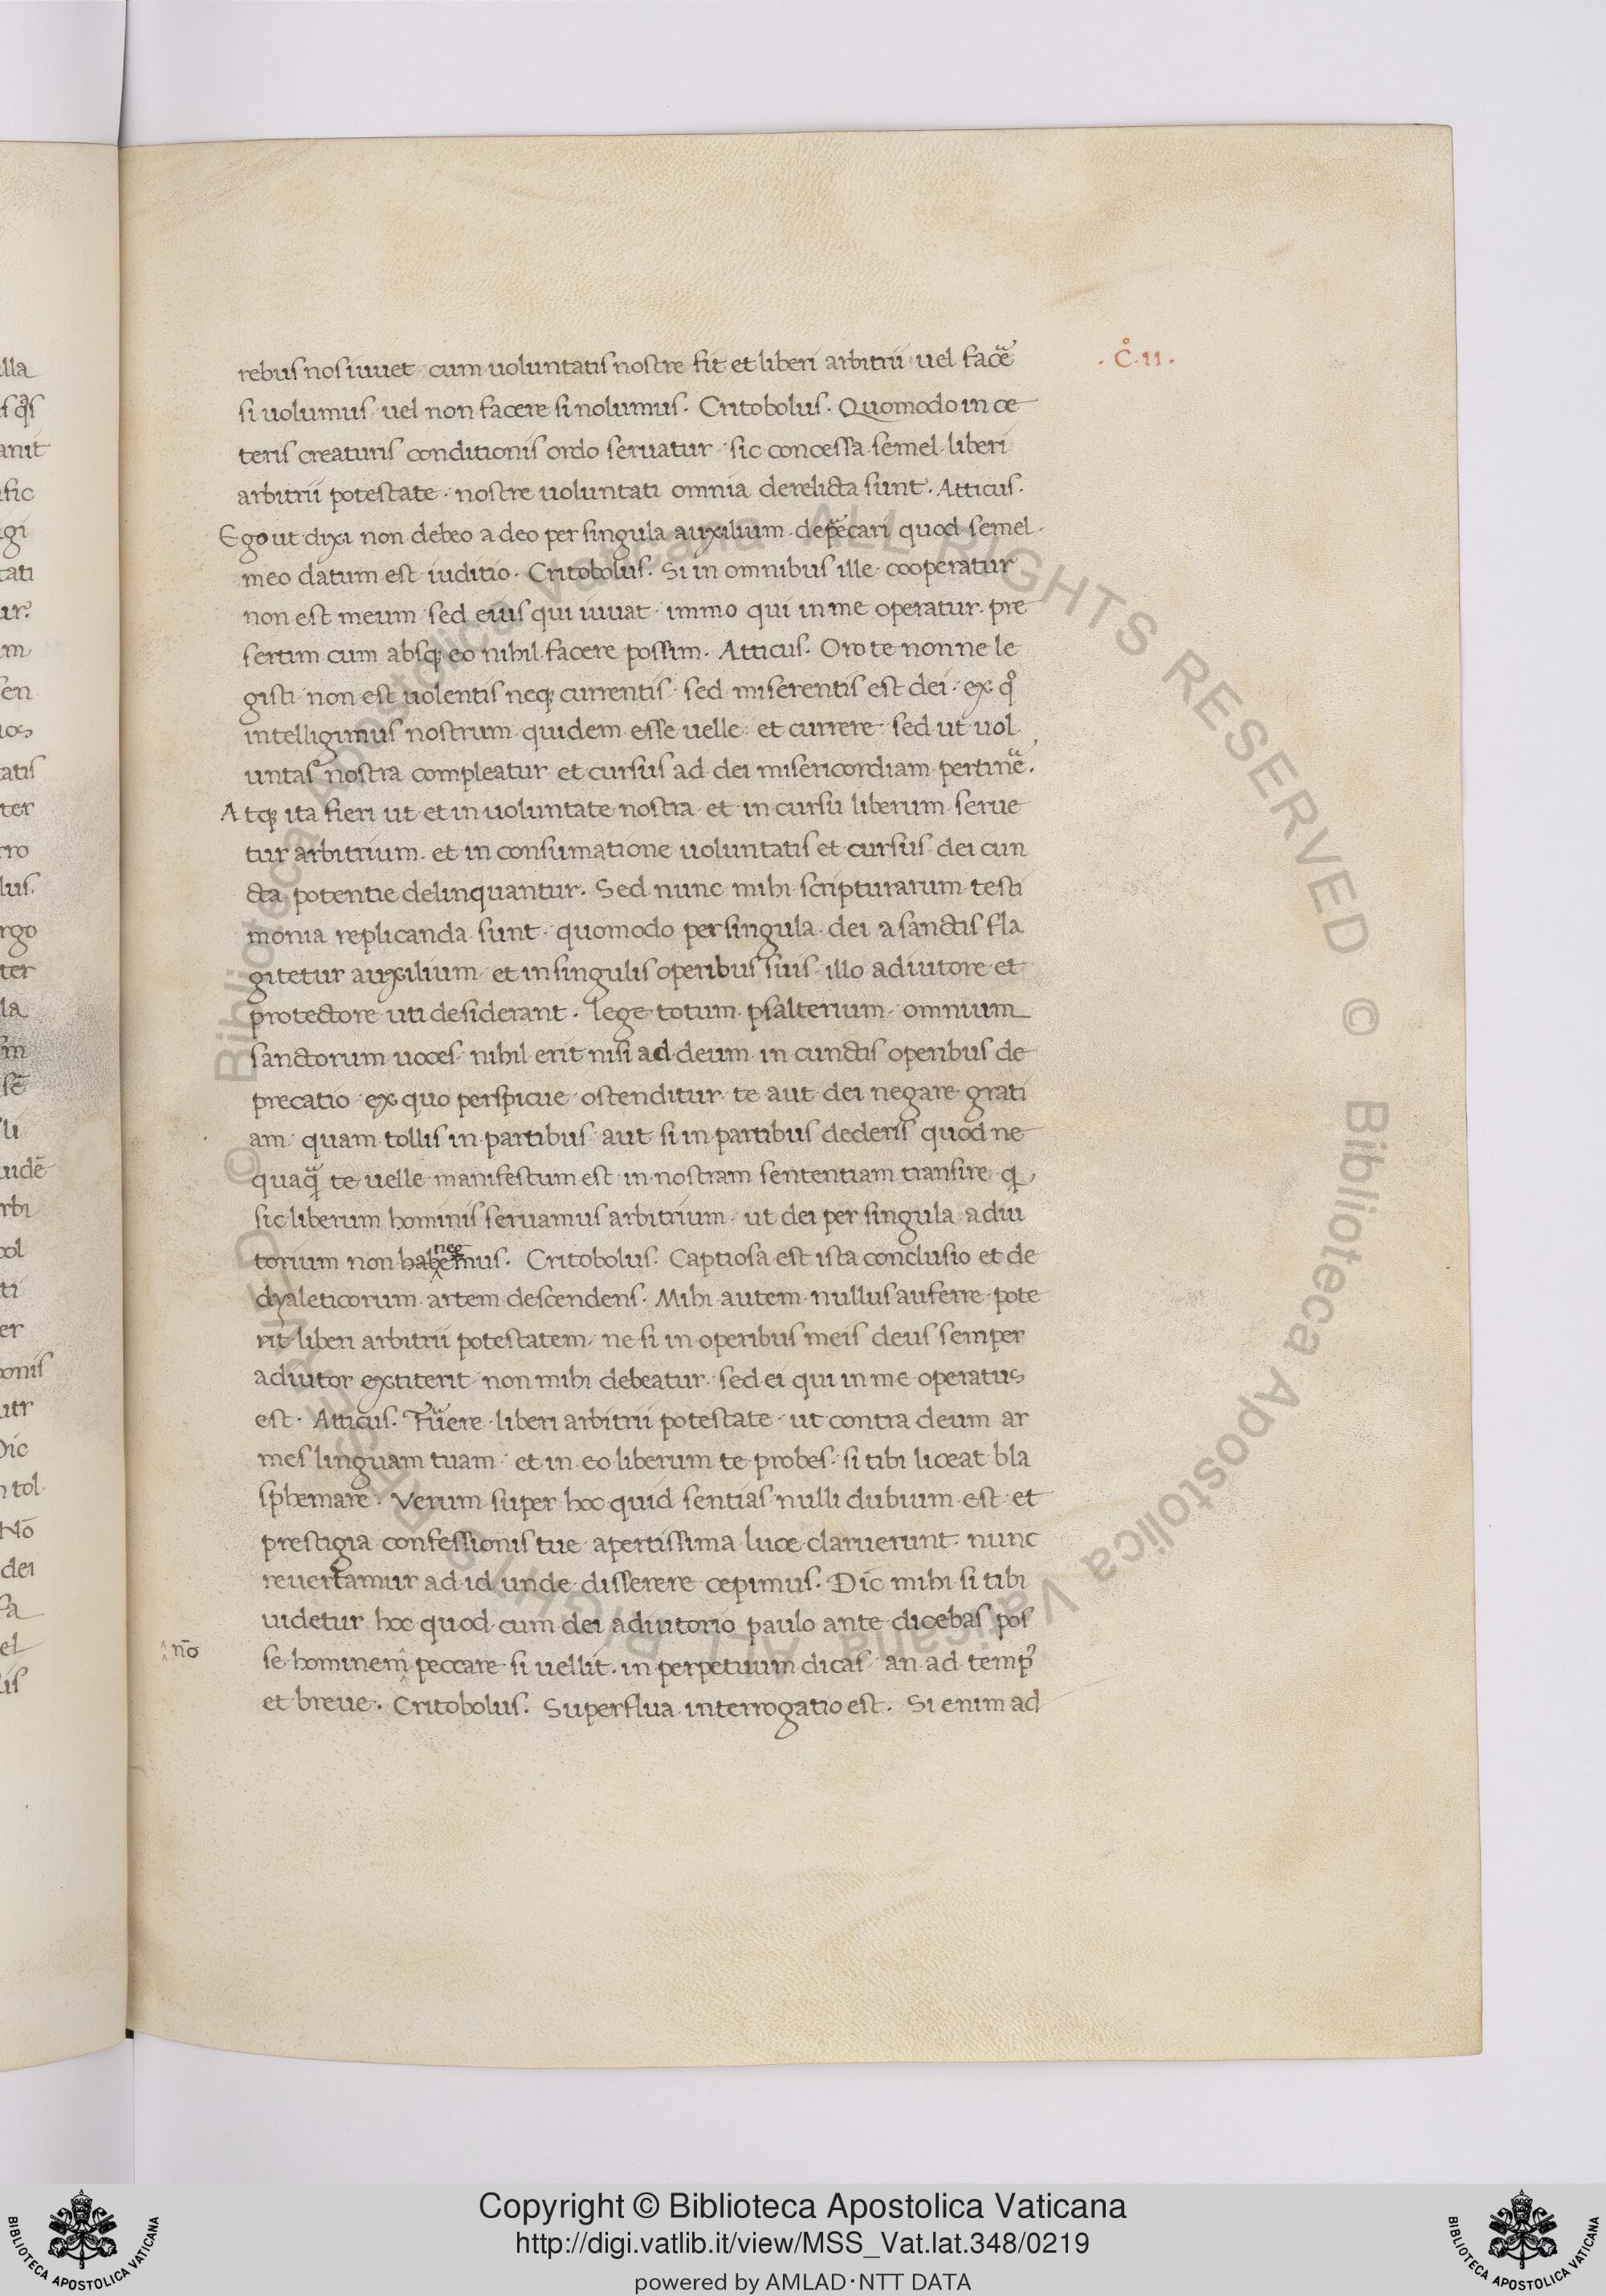 rebus nos iuuet cum uoluntatis nostre sit et liberi arbitrii uel facẽ
si uolumus uel non facere si nolumus. Critobolus. Quomodo in ce
teris creaturis conditionis ordo seruatur sic concessa semel liberi
arbitrii potestate nostre uoluntati omnia derelicta sunt. Atticus.
Ego ut dixi non debeo a deo per singula auxilium dep̃ecari quod semel
meo datum est iuditio. Critobolus. Si in omnibus ille cooperatur
non est meum sed eius qui iuuat immo qui in me operatur pre
sertim cum absq; eo nihil facere possim. Atticus. Oro te nonne le
gisti non est uolentis neq; currentis sed miserentis est dei ex qͦ
intelligimus nostrum quidem esse uelle et currere sed ut uol
untas nostra compleatur et cursus ad dei misericordiam pertinẽ.
Atq; ita fieri ut et in uoluntate nostra et in cursu liberum serue
tur arbitrium et in consumatione uoluntatis et cursus dei cun
cta potentie delinquantur. Sed nunc mihi scripturarum testi
monia replicanda sunt quomodo per singula dei a sanctis fla
gitetur auxilium et in singulis operibus suis illo adiutore et
protectore uti desiderant. lege totum psalterium omnium
sanctorum uoces nihil erit nisi ad deum in cunctis operibus de
precatio ex quo perspicue ostenditur te aut dei negare grati
am quam tollis in partibus aut si in partibus dederis quod ne
quaq̃ te uelle manifestum est in nostram sententiam transire q
sic liberum hominis seruamus arbitrium ut dei per singula adiu
torium non habemus. Critobolus. Captiosa est ista conclusio et de
neg
dyaleticorum artem descendens. Mihi autem nullus auferre pote
rit liberi arbitrii potestatem ne si in operibus meis deus semper
adiutor extiterit non mihi debeatur sed ei qui in me operatus
est. Atticus. Fũere liberi arbitrii potestate ut contra deum ar
mes linguam tuam et in eo liberum te probes si tibi liceat bla
sphemare. Verum super hoc quid sentias nulli dubium est et
prestigia confessionis tue apertissima luce claruerunt nunc
reuertamur ad id unde disserere cepimus. Dic mihi si tibi
uidetur hoc quod cum dei adiutorio paulo ante dicebas pos
se hominem peccare si uellit in perpetuum dicas an ad temp᾽
et breue. Critobolus. Superflua interrogatio est. Si enim ad
nō
.Cͦ.11.
© Biblioteca Apostolica Vaticana ALL RIGHTS RESERVED © Biblioteca Apostolica Vaticana ALL RIGHTS RESERVED
Copyright © Biblioteca Apostolica Vaticana
http://digi.vatlib.it/view/MSS_Vat.lat.348/0219
powered by AMLAD·NTT DATA
BIBLIOTECA APOSTOLICA VATICANA
BIBLIOTECA APOSTOLICA VATICANA